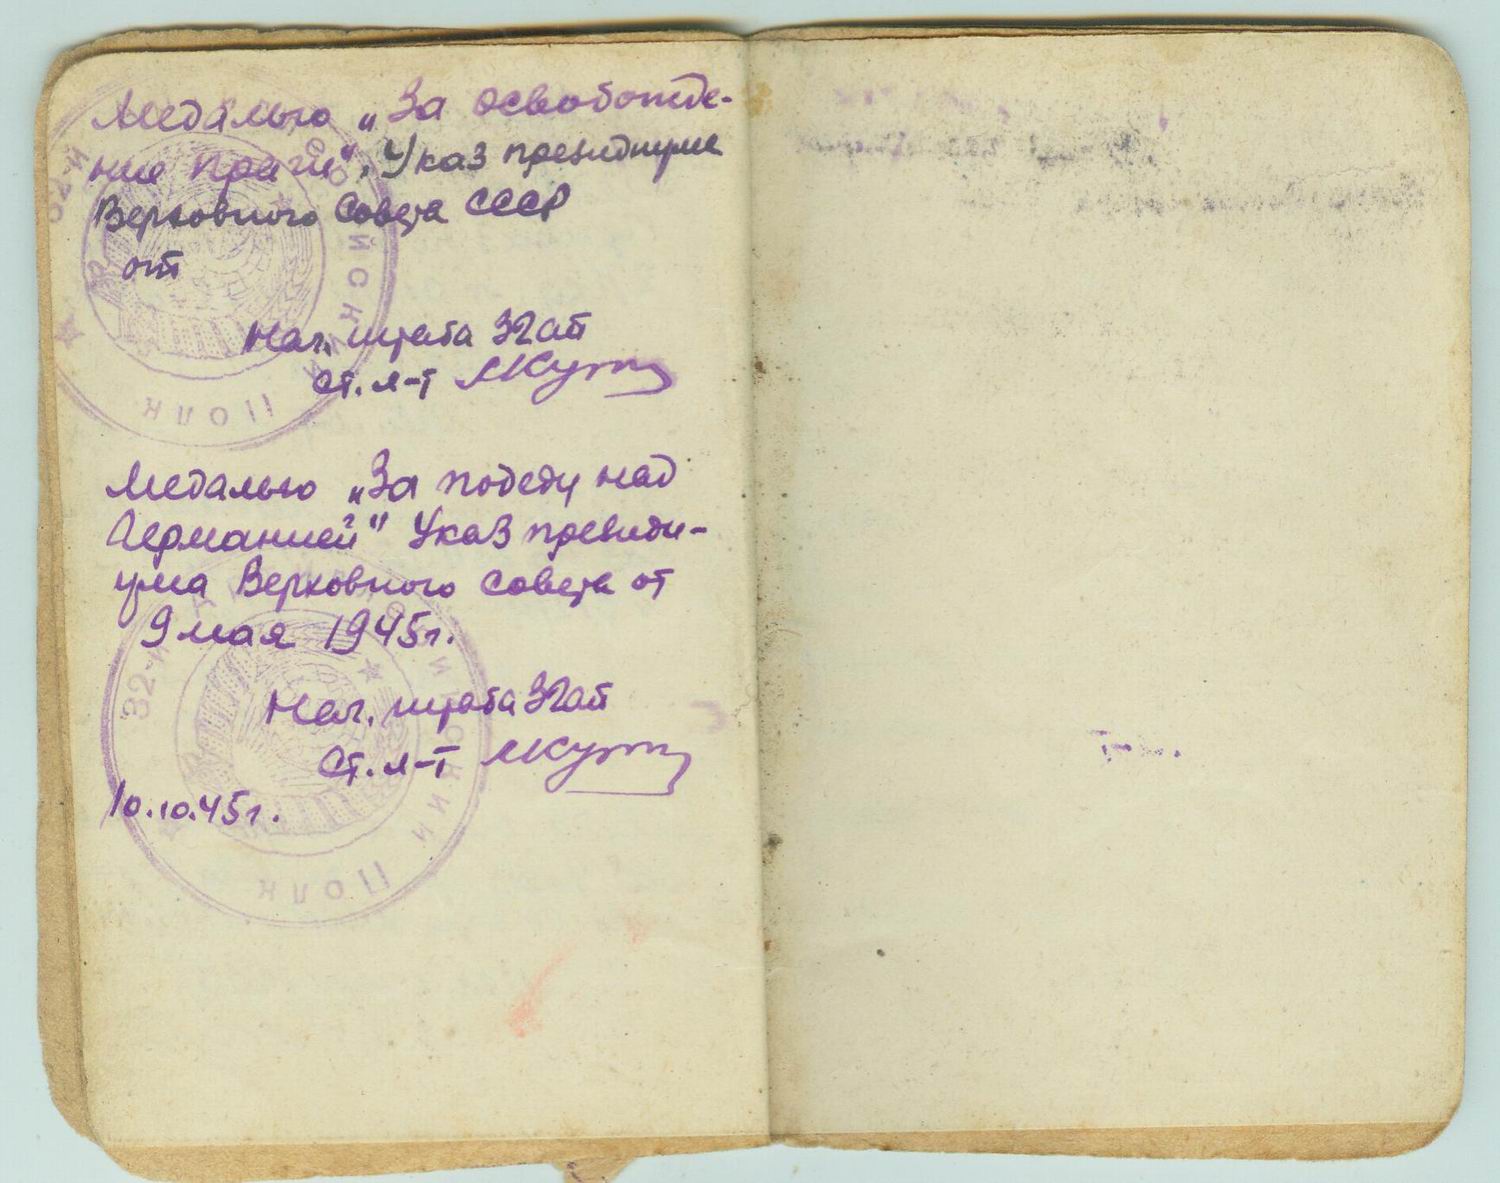 Медалью „За освобожде-
ние Праги", Указ президиума
Верховного Совета СССР
от
Нач. штаба 32 ап
ст. л-т
Медалью „За победу над
Германией" Указ президи-
ума Верховного совета от
9 мая 1945г.
Нач. штаба 32 ап
Ст. л-т
10.10.45г.
32-й
ПОЛК
32-й
ПОЛК